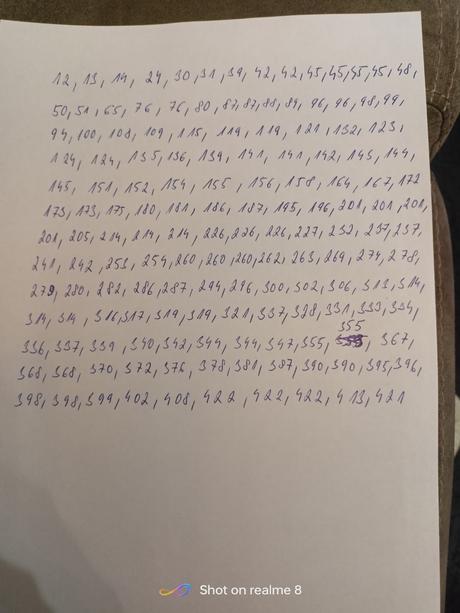 12, 13, 14, 24, 30, 31, 39, 42, 42, 45, 45, 45, 45, 48,
50, 51, 65, 76, 76, 80, 87, 87, 88, 89, 96, 96, 98, 99,
94, 100, 108, 109, 115, 119, 119, 121, 132, 123,
124, 124, 135, 136, 139, 141, 141, 142, 145, 144,
145, 151, 152, 154, 155, 156, 158, 164, 167, 172
173, 173, 175, 180, 181, 186, 187, 195, 196, 201, 201, 201,
201, 205, 214, 214, 214, 226, 226, 226, 227, 232, 237, 237,
241, 242, 253, 254, 260, 260, 260, 262, 263, 269, 274, 278,
279, 280, 282, 286, 287, 294, 296, 300, 302, 306, 313, 314,
314, 314, 316, 317, 319, 319, 321, 337, 328, 331, 333, 334,
355
336, 337, 339, 340, 342, 344, 344, 347, 355, 367,
368, 368, 370, 372, 376, 378, 381, 387, 390, 390, 395, 396,
398, 398, 399, 402, 408, 422, 422, 422, 413, 421
Shot on realme 8